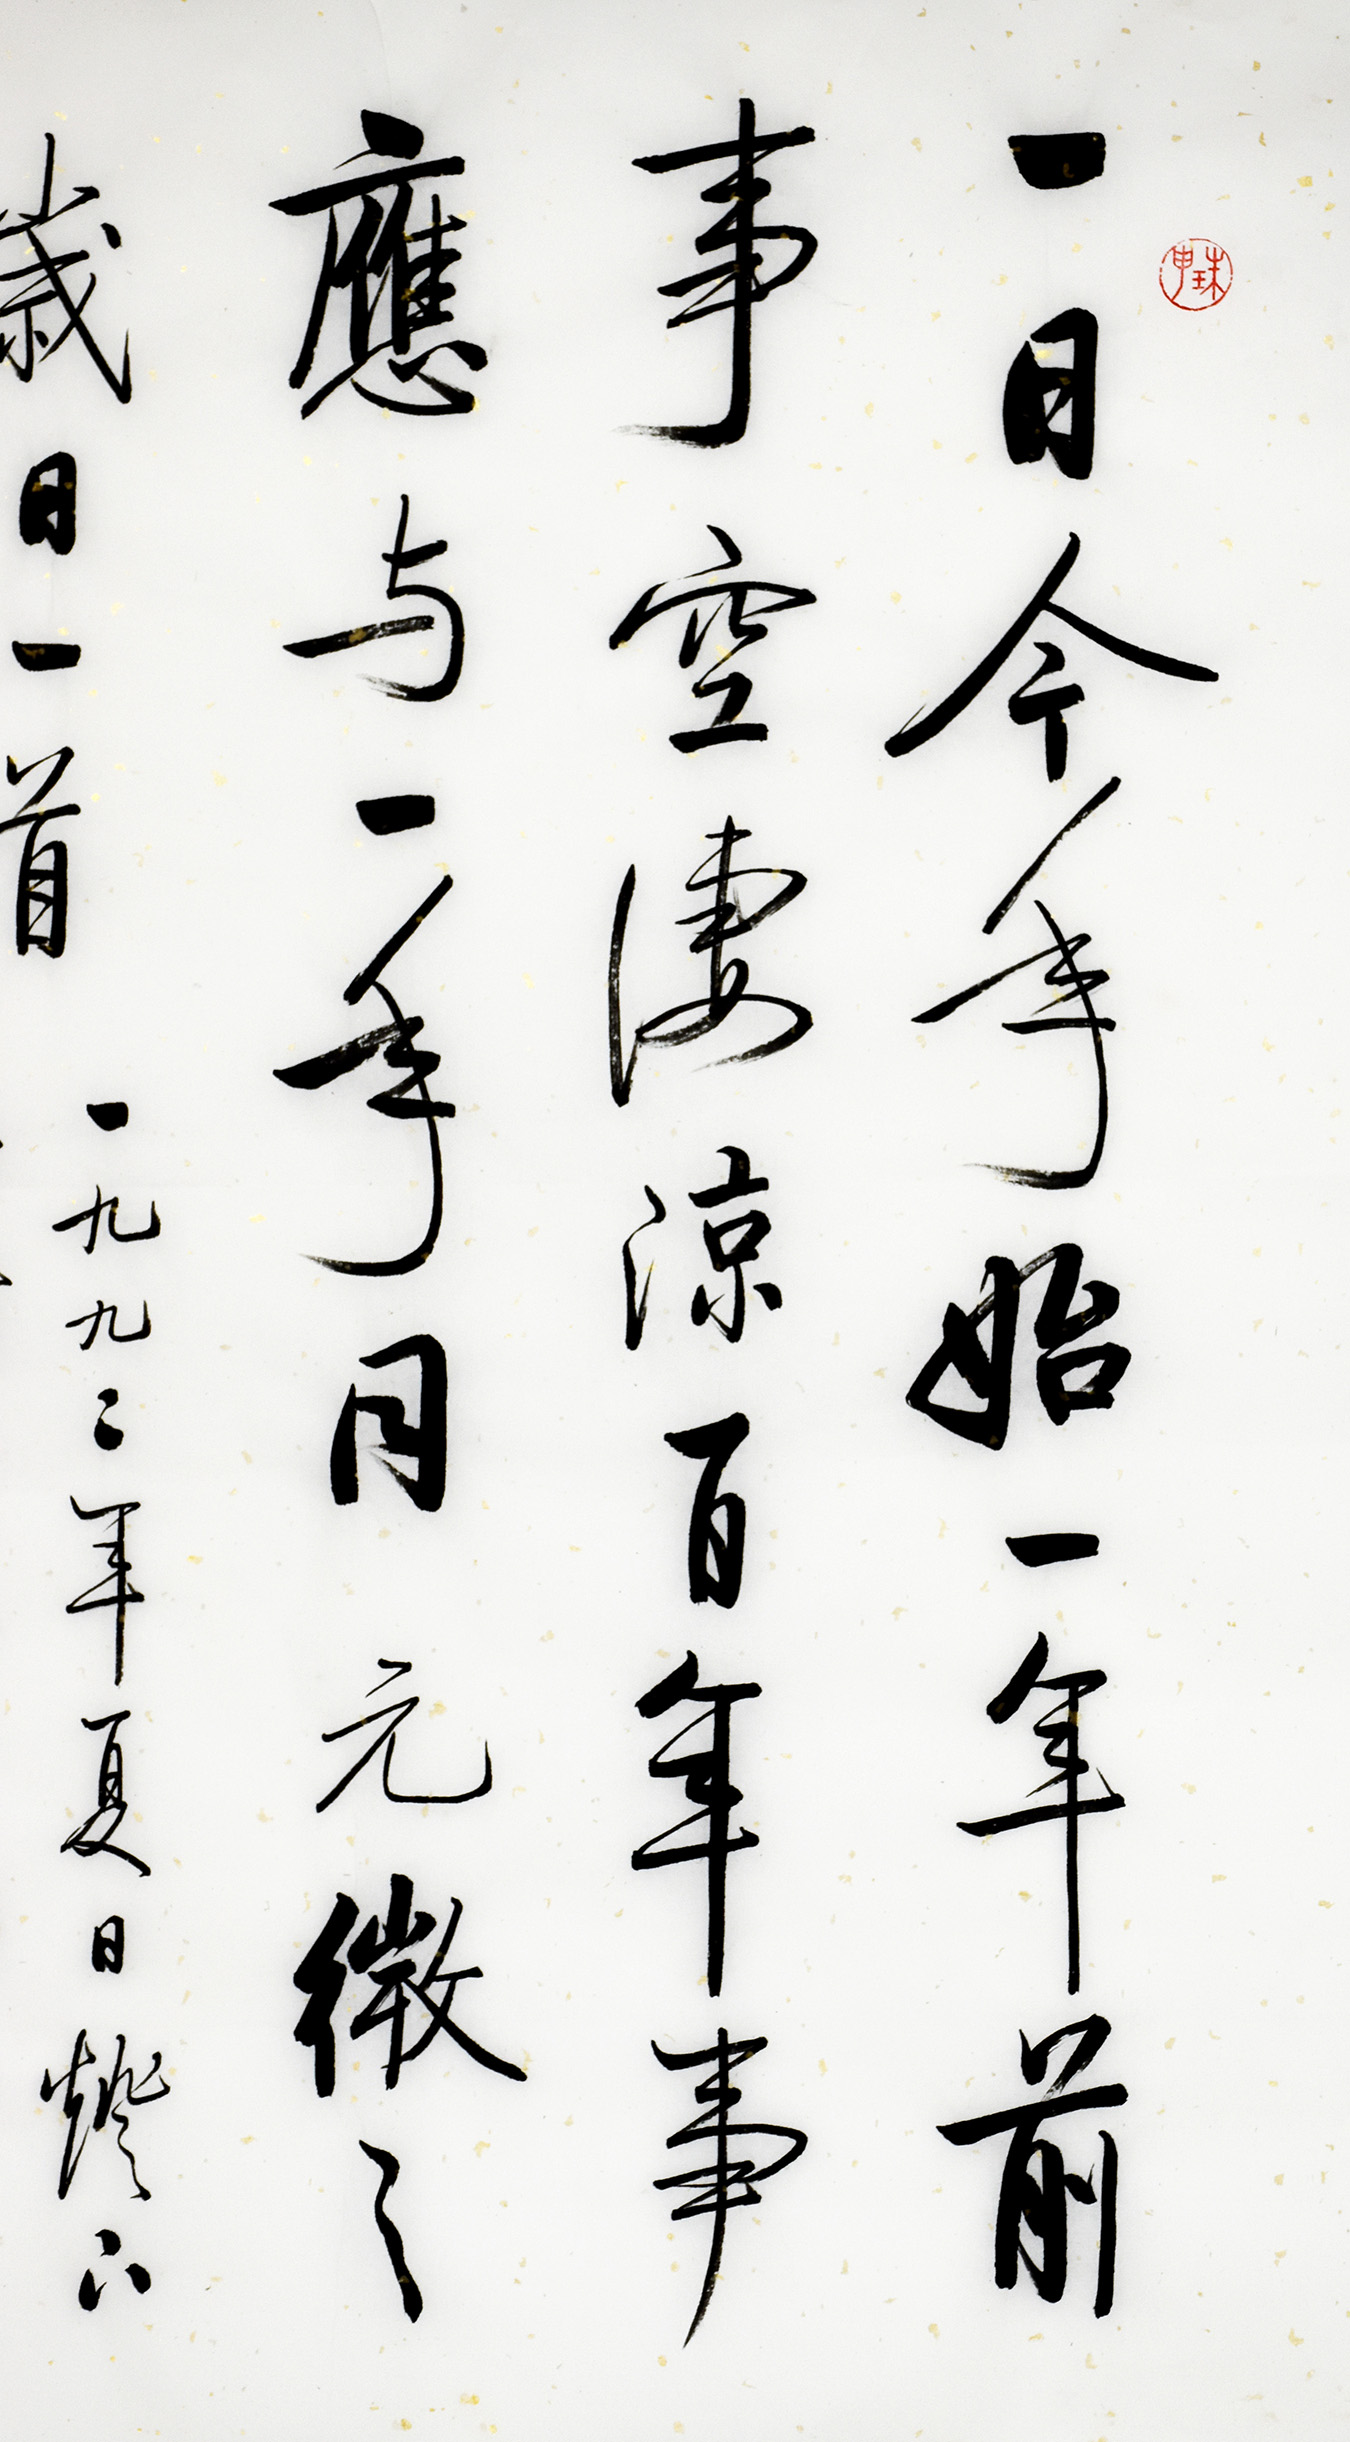 一日今年始一年前
事空凄涼百年事
應与一年同元微之
歲日一首
一九九二年夏日燈下